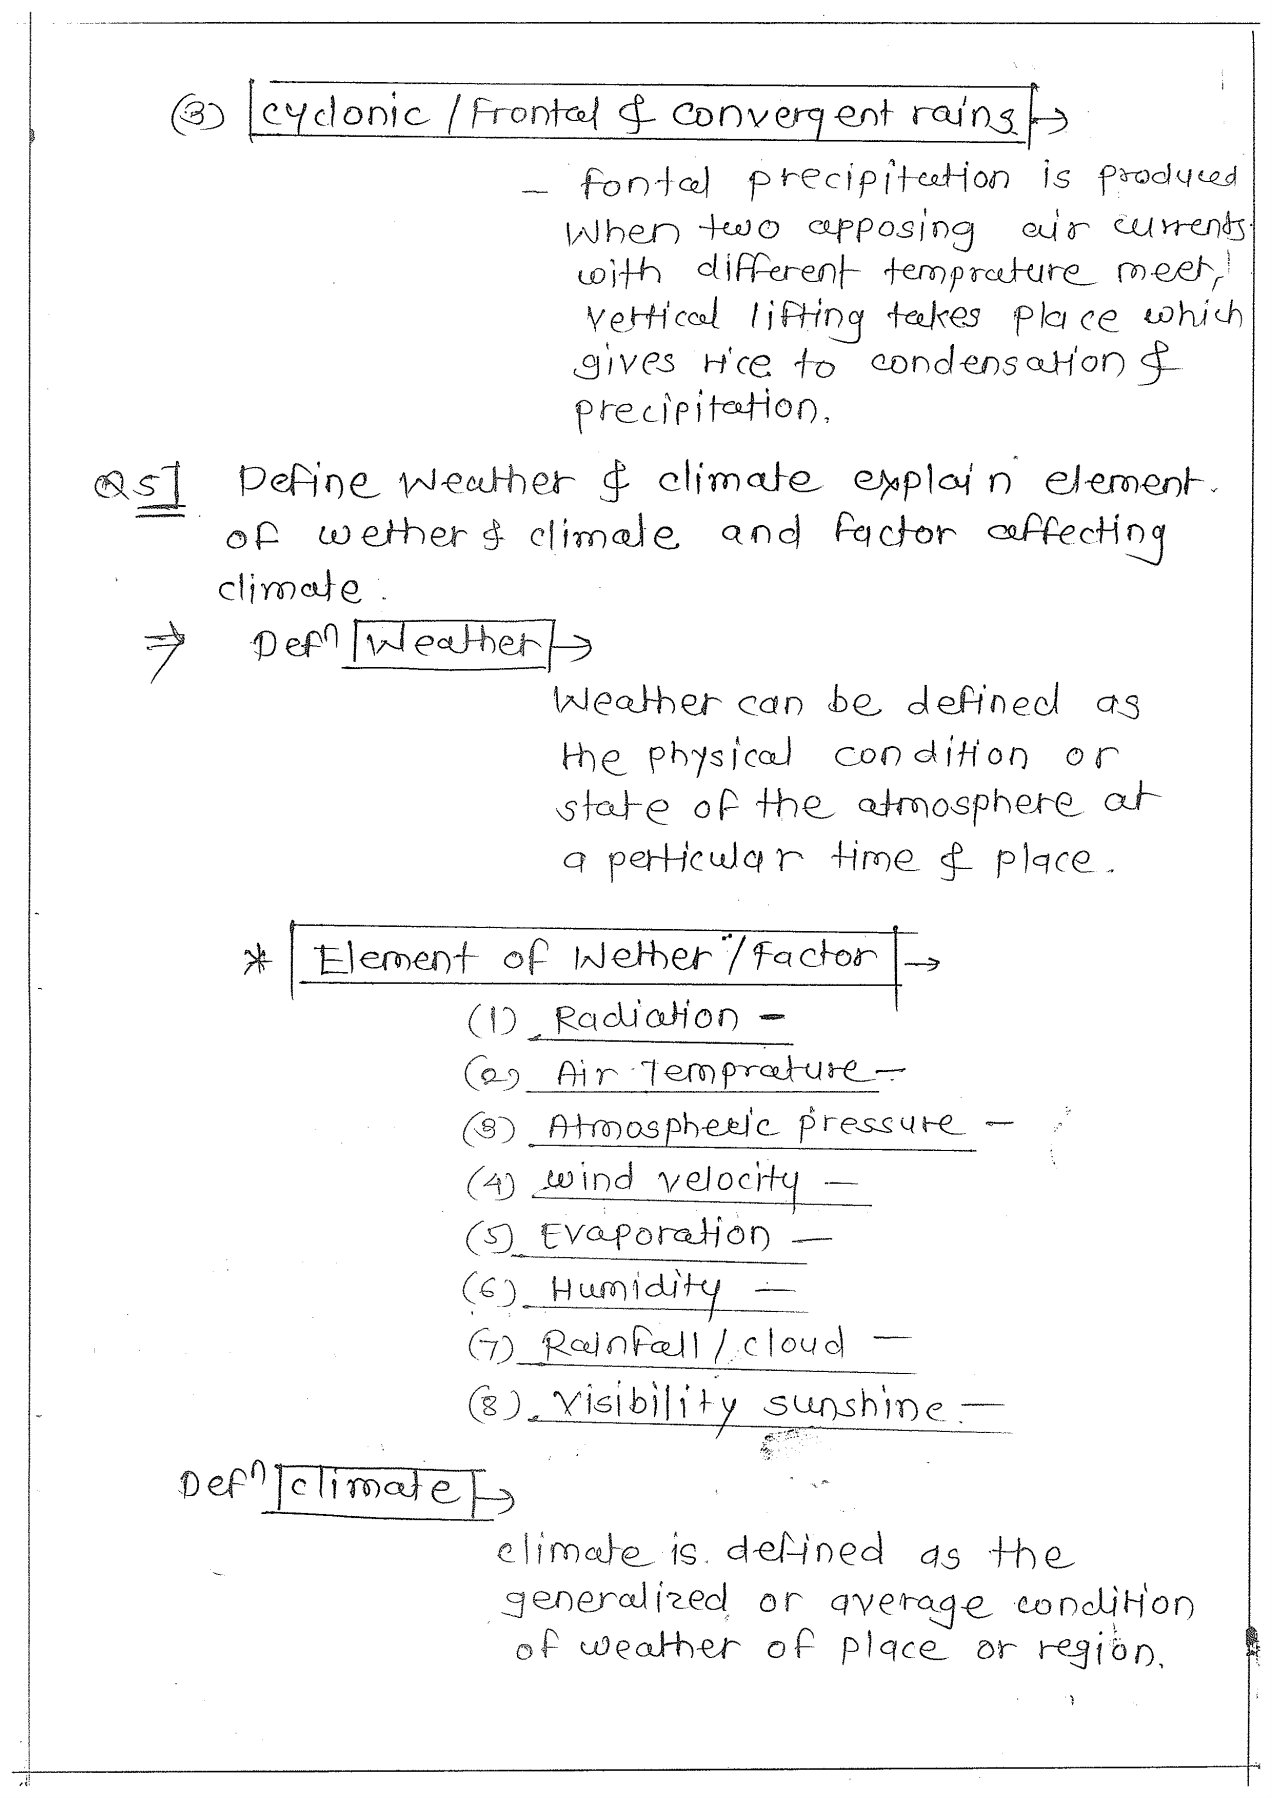 (3) cyclonic / Frontal & convergent rains →
- fontal precipitation is produced
When two opposing air currents
with different temprature meet,
vertical lifting takes place which
gives rice to condensation &
precipitation.
Q5] Define Weather & climate explain element.
of wether & climate and factor affecting
climate.
⇒ Defn Weather →
Weather can be defined as
the physical condition or
state of the atmosphere at
a perticular time & place.
* Element of Wether / Factor →
(1) Radiation -
(2) Air Temprature -
(3) Atmospheric pressure -
(4) wind velocity -
(5) Evaporation -
(6) Humidity -
(7) Rainfall / cloud -
(8) visibility sunshine -
Defn climate →
climate is defined as the
generalized or average condition
of weather of place or region.